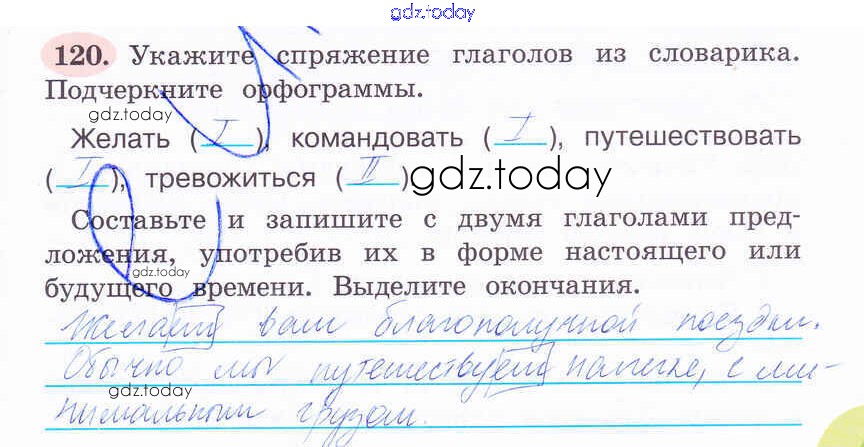 gdz.today
120. Укажите спряжение глаголов из словарика.
Подчеркните орфограммы.
gdz.today
Желать ( I ), командовать ( I ), путешествовать
( I ), тревожиться ( II ) gdz.today
Составьте и запишите с двумя глаголами пред-
ложения, употребив их в форме настоящего или
gdz.today
будущего времени. Выделите окончания.
Желаем вам благополучной поездки.
Обычно мы путешествуем налегке, с ми-
gdz.today
нимальным грузом.